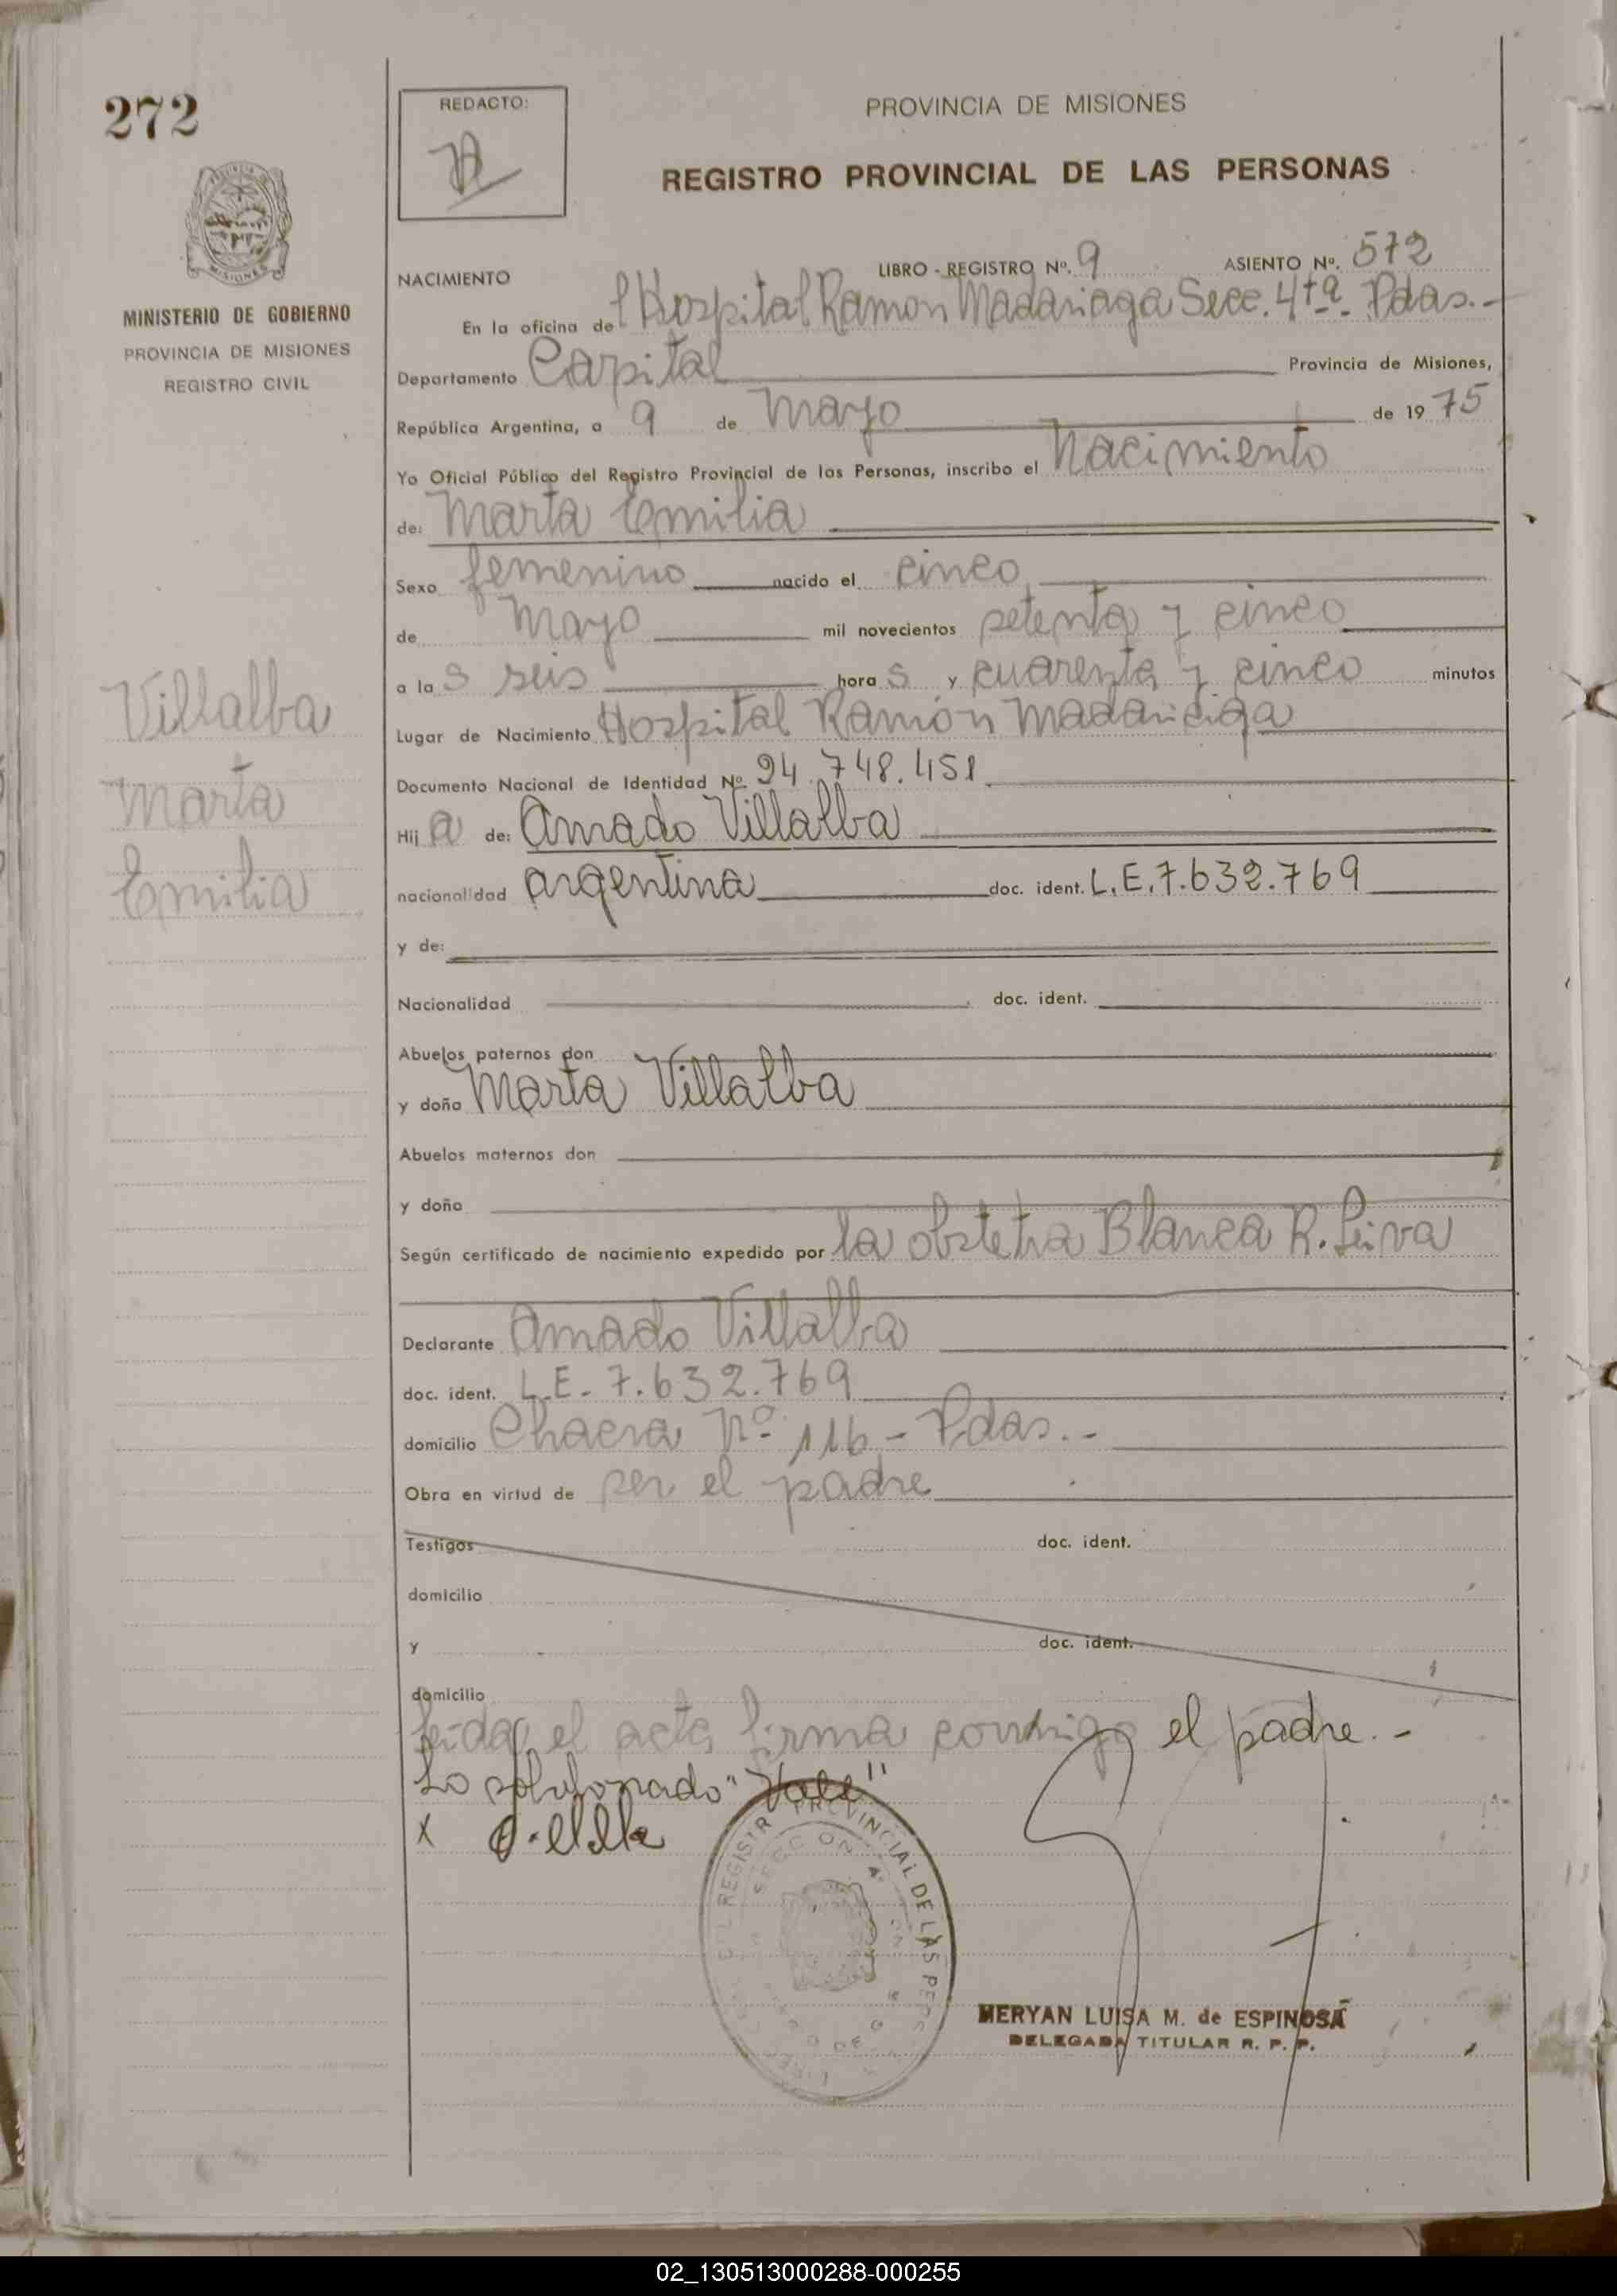 272
REDACTO:
PROVINCIA DE MISIONES
REGISTRO PROVINCIAL DE LAS PERSONAS
MINISTERIO DE GOBIERNO
PROVINCIA DE MISIONES
REGISTRO CIVIL
NACIMIENTO LIBRO - REGISTRO Nº. 9 ASIENTO Nº. 572
En la oficina de l Hospital Ramon Madariaga Secc. 4ta. Pdas. -
Departamento Capital Provincia de Misiones,
República Argentina, a 9 de Mayo de 1975
Yo Oficial Público del Registro Provincial de las Personas, inscribo el Nacimiento
de: Marta Emilia
Sexo femenino nacido el cinco
de Mayo mil novecientos setenta y cinco
a la s seis hora s y cuarenta y cinco minutos
Villalba
Marta
Emilia
Lugar de Nacimiento Hospital Ramón Madariaga
Documento Nacional de Identidad Nº 24.748.451
Hij a de: Amado Villalba
nacionalidad argentina doc. ident. L.E. 7.632.769
y de:
Nacionalidad doc. ident.
Abuelos paternos don
y doña Marta Villalba
Abuelos maternos don
y doña
Según certificado de nacimiento expedido por la obstetra Blanca R. Leiva
Declarante Amado Villalba
doc. ident. L.E. - 7.632.769
domicilio Chacra Nº 116 - Pdas. -
Obra en virtud de ser el padre
Testigos doc. ident.
domicilio
y doc. ident.
domicilio
Leida el acta firma conmigo el padre. -
Lo sobrborrado "Vale"
x
REGISTR PROVINCIAL DE LAS PERS
MERYAN LUISA M. de ESPINOSA
DELEGADA TITULAR R. P. P.
02_130513000288-000255